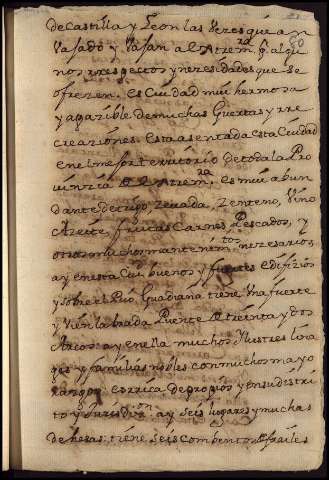 de Castilla y Leon las vezes que an
Pasado y Pasan al Estrem.ra p.r algu
nos rrespectos y nezesidades que se
ofrezen. es Ciudad mui hermosa
y apazible de muchas Guertas y rre
creaziones. esta asentada esta Ciudad
en el mejor territorio de toda la Pro
uinzia de estrem.ra es mui abun
dante de trigo, zevada, Zenteno, Vino
Azeite, frutas Carnes Pescados, y
otros muchos mantenim.tos nezesarios,
ay en esta Ciu. buenos y fuertes edifizios
y sobre el Rio Guadiana tiene Una fuerte
y vien labrada Puente de treinta y dos
Arcos. ay en ella muchos Illustres lina
ges y familias nobles con muchos mayo
razgos. es rrica de propios y en su distri
to y Jurisdi.on ay seis lugares y muchas
dehesas: tiene seis combentos de frailes